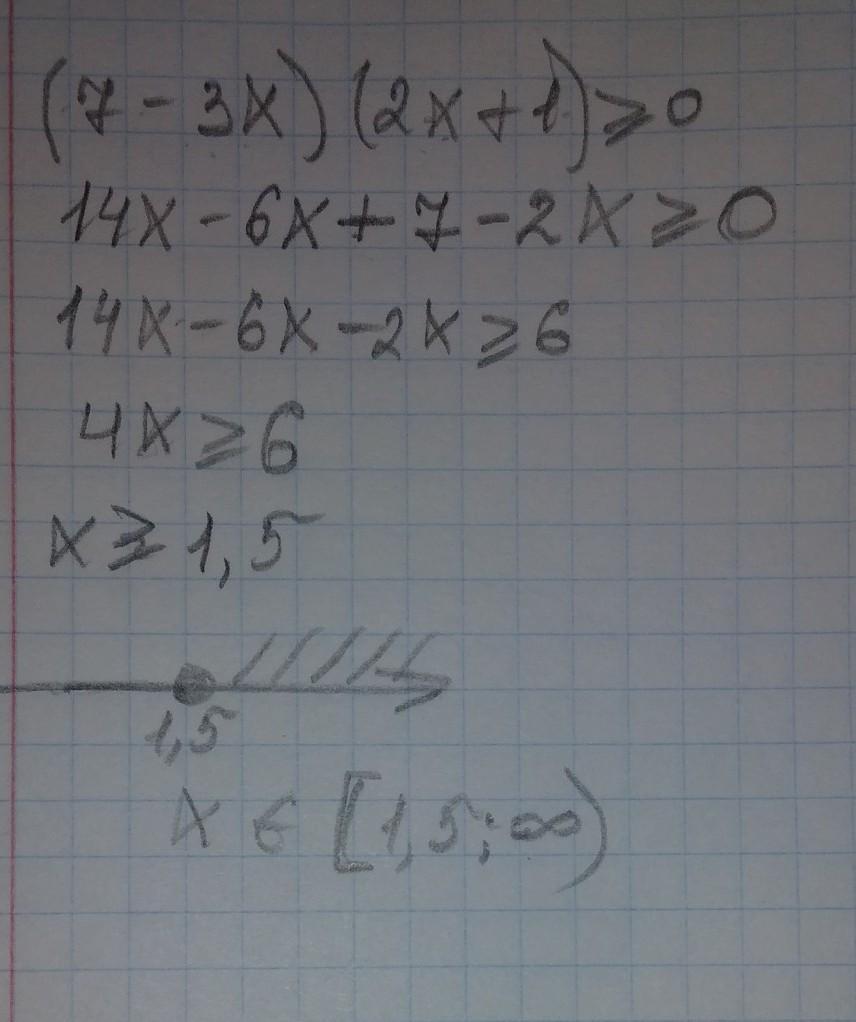 (7 - 3x) (2x + 1) ⩾ 0
14x - 6x + 7 - 2x ⩾ 0
14x - 6x - 2x ⩾ 6
4x ⩾ 6
x ⩾ 1,5
1,5
x ∈ [1,5; ∞)